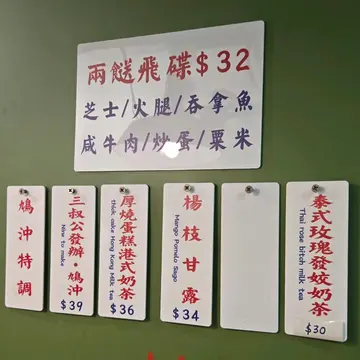 兩餸飛碟$32
芝士/火腿/吞拿魚
咸牛肉/炒蛋/粟米
鳩沖特調
三叔公發辦·鳩沖
Nine to make
$39
厚燒蛋糕港式奶茶
thick cake Hong Kong Milk tea
$36
楊枝甘露
Mango Pomelo Sago
$34
泰式玫瑰發姣奶茶
Thai rose bitch milk tea
$30